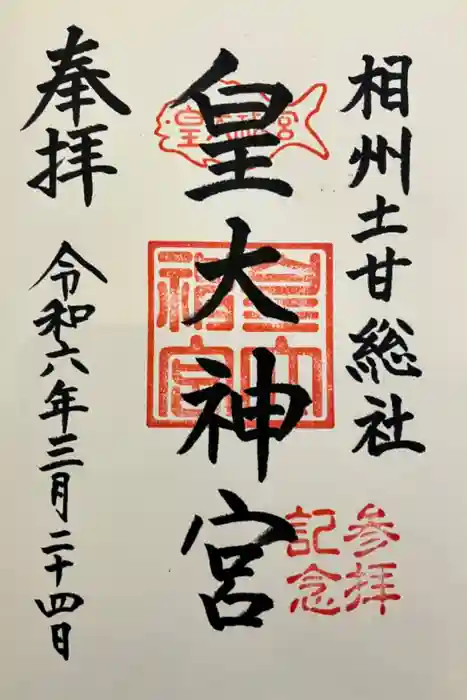 相州土甘総社
皇大神宮
皇大神宮
皇大神宮
参拝
記念
奉拝
令和六年三月二十四日